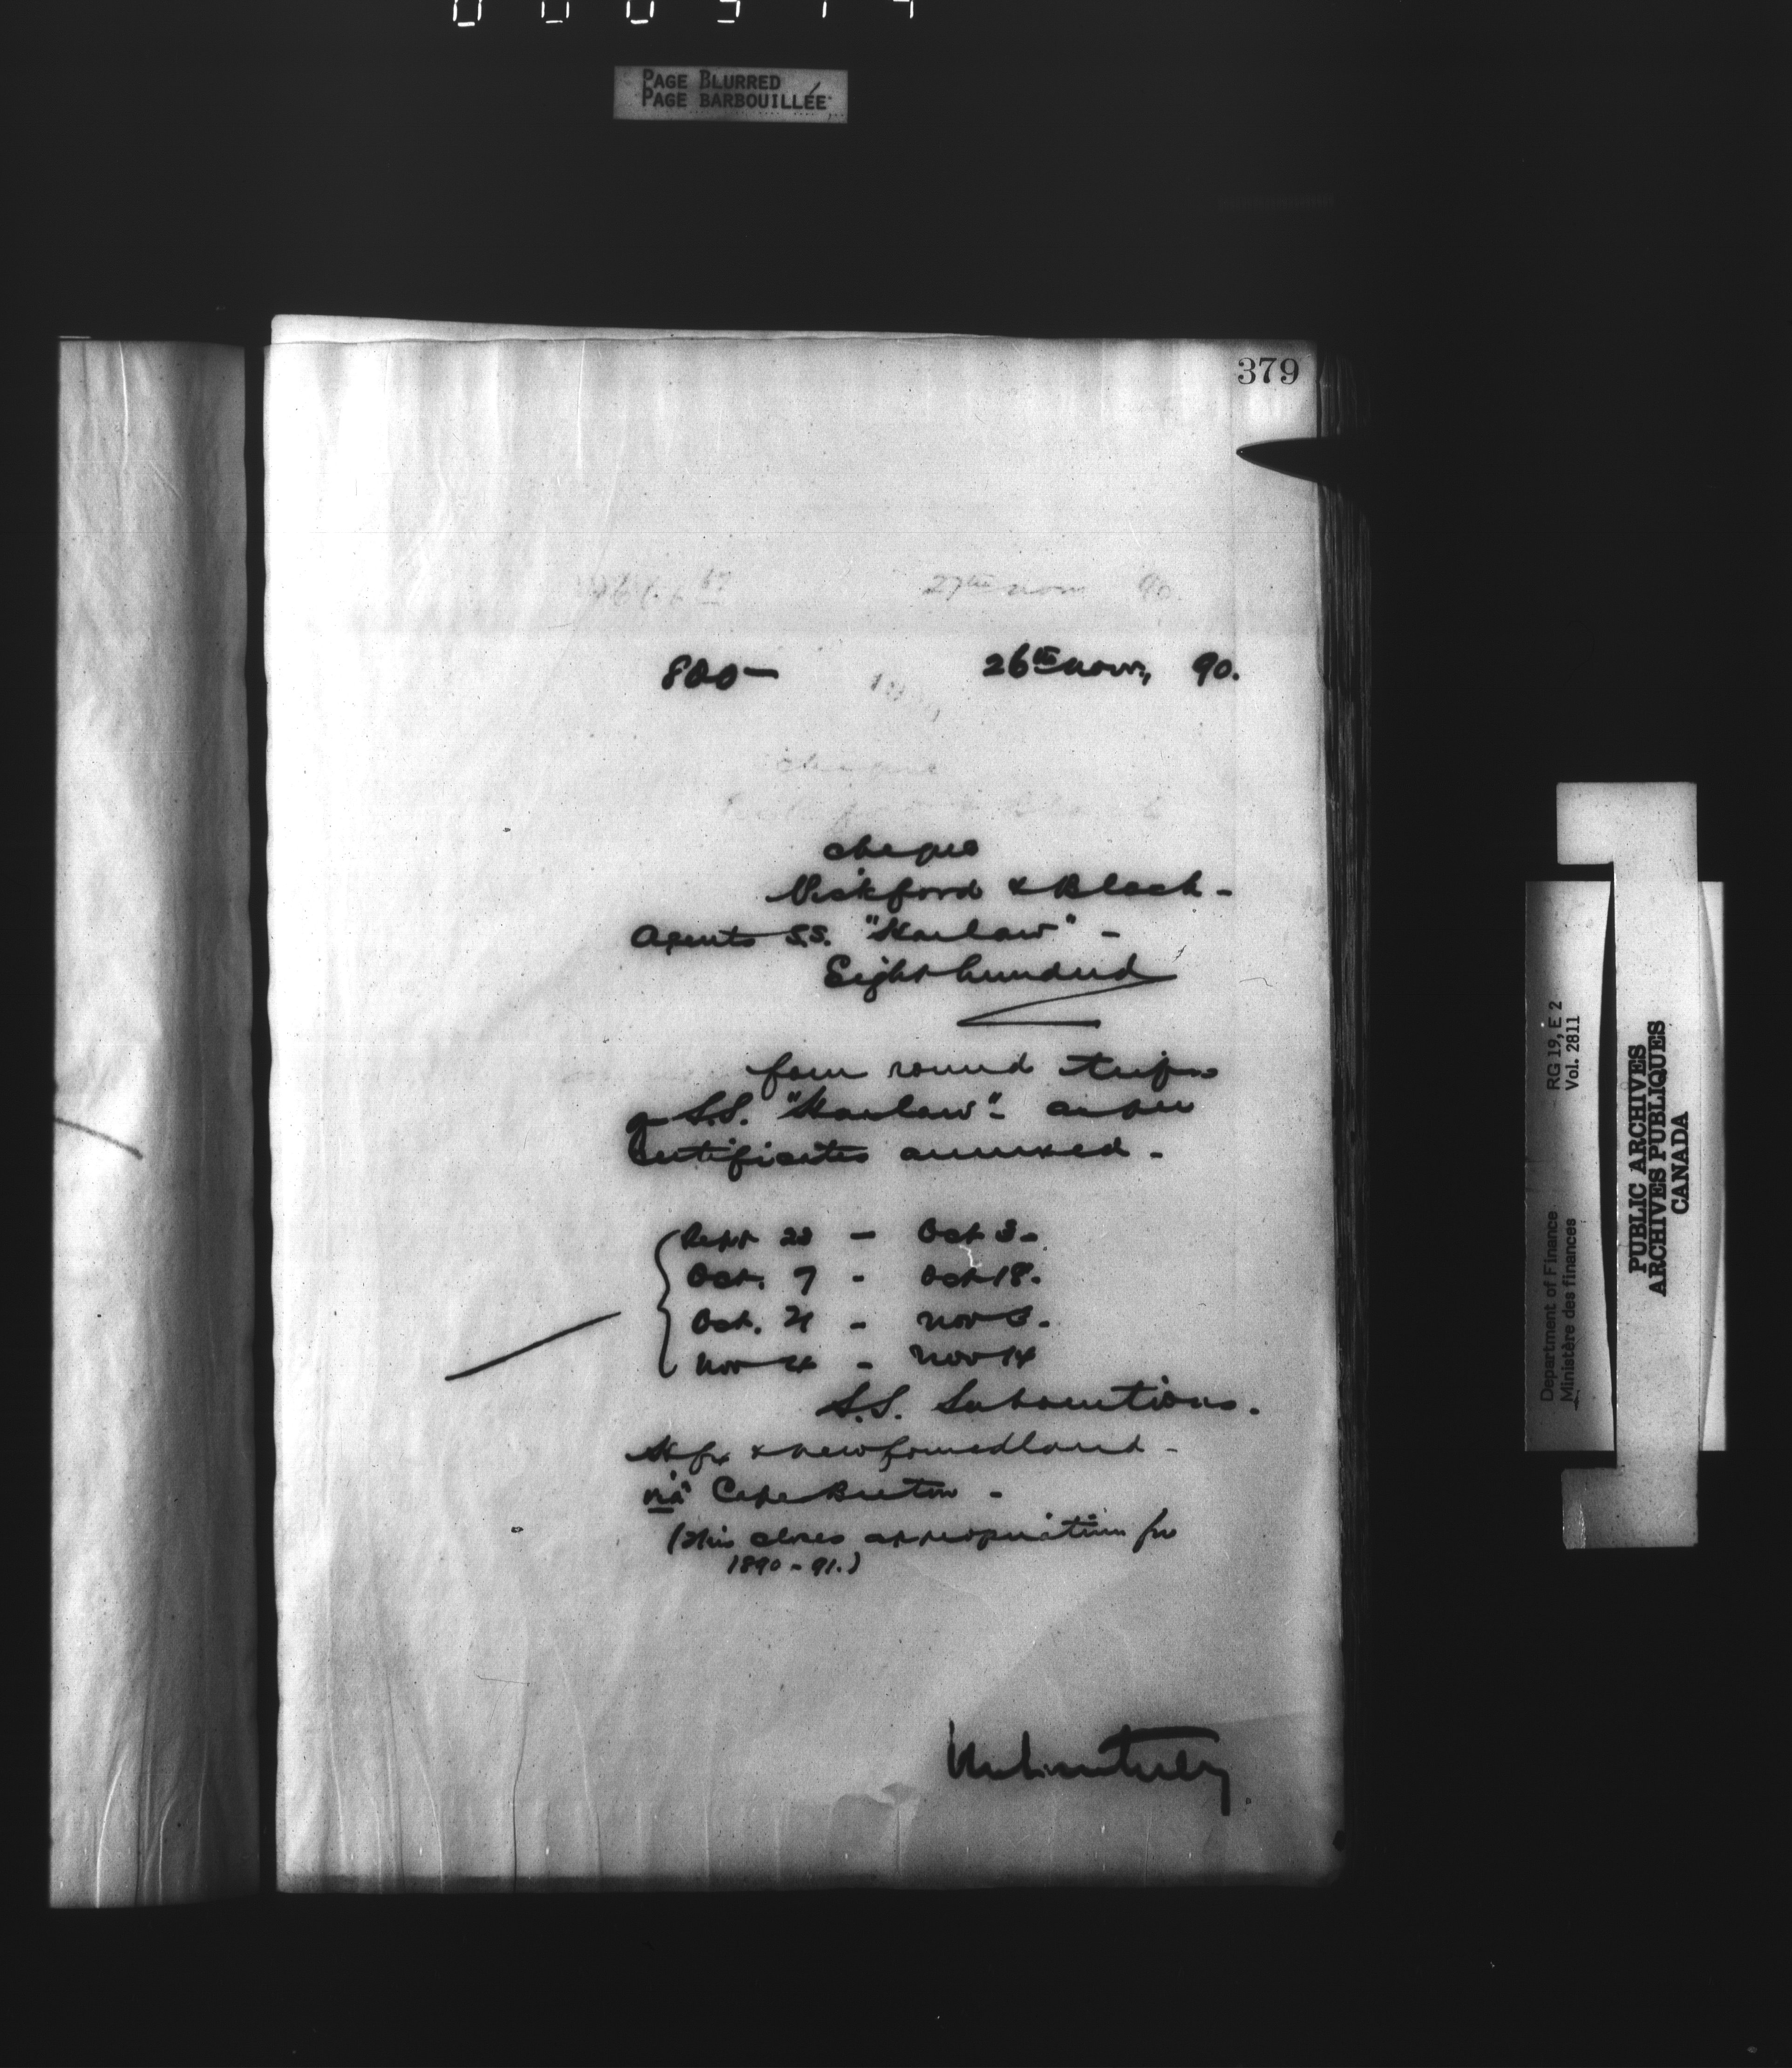 PAGE BLURRED
PAGE BARBOUILLÉE
379
27th Nov 90.
800– 26th Nov., 90.
cheque
cheque
Pickford & Black –
Agents S.S. "Harlaw" –
Eight hundred
four round trips
of S.S. "Harlaw" – as per
Certificates annexed –
Sept 23 – Oct 3 –
Oct. 7 – Oct 18.
Oct. 21 – Nov 3.
Nov 4 – Nov 14
S.S. Subventions.
Hfx & Newfoundland –
via Cape Breton –
(This closes appropriation for
1890–91.)
Department of Finance
Ministère des finances
RG 19, E 2
Vol. 2811
PUBLIC ARCHIVES
ARCHIVES PUBLIQUES
CANADA